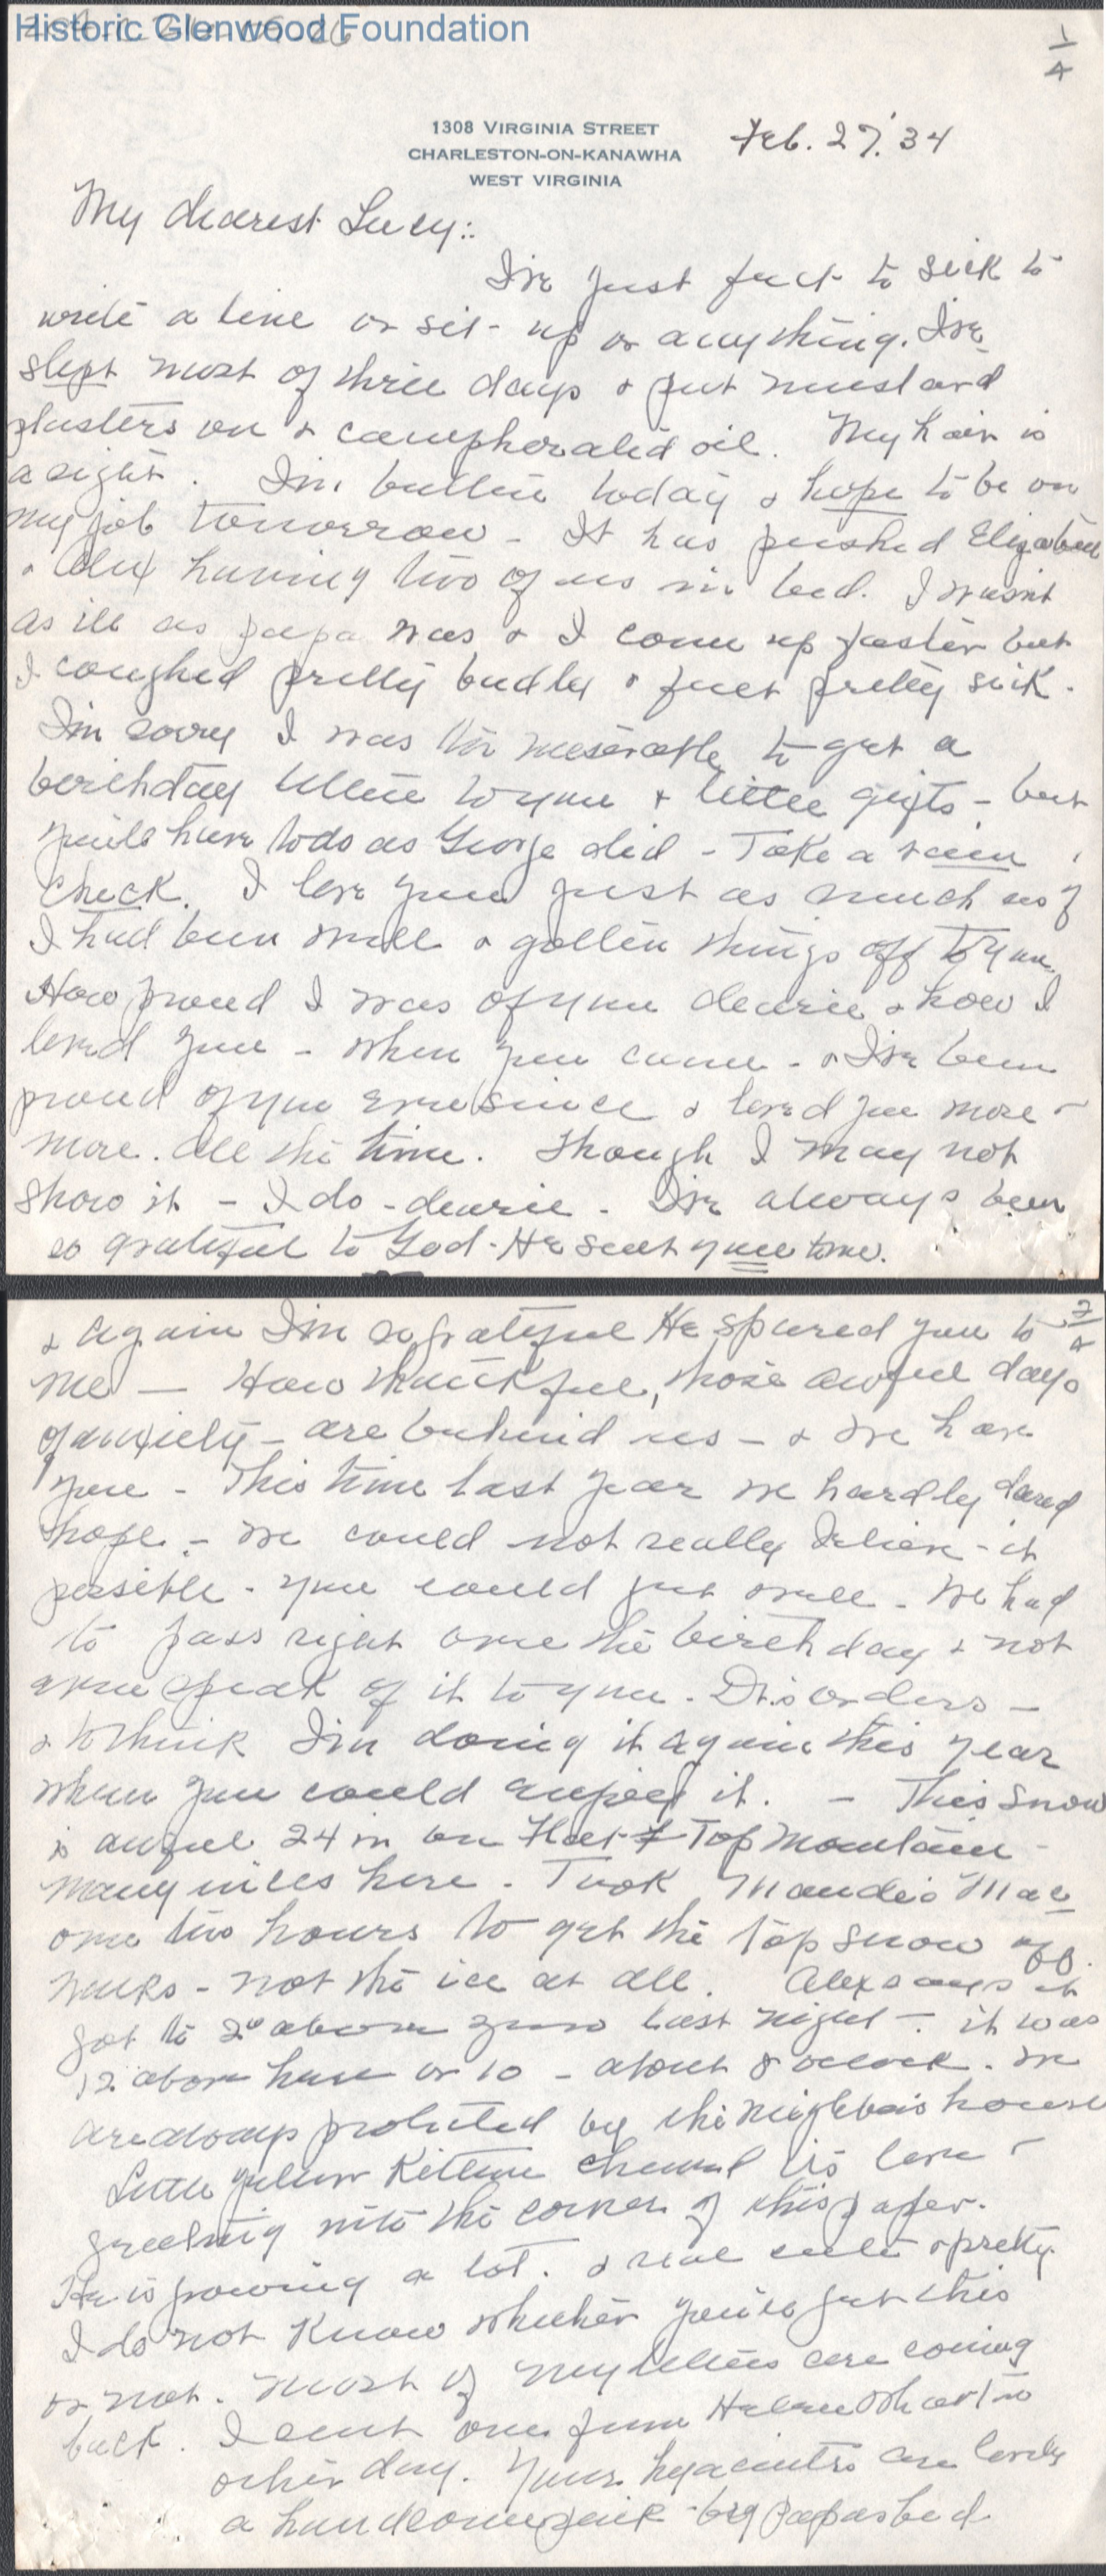 Historic Glenwood Foundation
1/4
1308 VIRGINIA STREET
CHARLESTON-ON-KANAWHA
WEST VIRGINIA
Feb. 27. '34
My dearest Lucy:
I've just felt to sick to
write a line or sit up or anything. I've
slept most of three days & put mustard
plasters on & campherated oil. My hair is
a sight. I'm better today & hope to be on
my job tomorrow - It has pushed Elizabeth
& Alex having two of us in bed. I wasn't
as ill as papa was & I come up faster but
I coughed pretty badly & felt pretty sick.
I'm sorry I was too miserable to get a
birthday letter to you & little gifts - but
you'll have to do as George did - Take a rain
check. I love you just as much as if
I had been well & gotten things off to you.
How proud I was of you dearie & how I
loved you - when you came - & I've been
proud of you ever since & loved you more &
more. All the time. Though I may not
show it - I do - dearie. I've always been
so grateful to God - He sent you to me.
2/4
& again I'm so grateful He spared you to
me — How thankful, those awful days
of anxiety - are behind us - & we have
you - This time last year we hardly dared
hope - we could not really believe - it
possible - you could get well - We had
to pass right over the birthday & not
even speak of it to you - Dr.s orders -
& to think I'm doing it again this year
when you could enjoy it. - This snow
is awful 24 in on Flat Top Mountain -
many miles here - Took Maude's Mac
over two hours to get the top snow off
walks - not the ice at all. Alex says it
got to 2° above zero last night - it was
12 above here or 10 - about 8 oclock. We
are always protected by the neighbors house
Little yellow Kittene chewed his love &
greeting into the corner of this paper.
He is growing a lot. & real cute & pretty
I do not know whether you'll get this
or not. Most of my letters are coming
back. I sent one from Helen
other day. Your hyacinths are lovely
a handsome pink - by papas bed